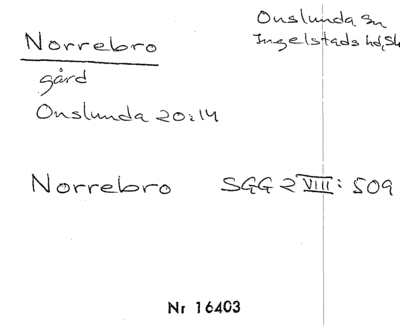 Onslunda sn
Ingelstads hd, Sk
Norrebro
gård
Onslunda 20:14
Norrebro SGG 2 VIII: 509
Nr 16403